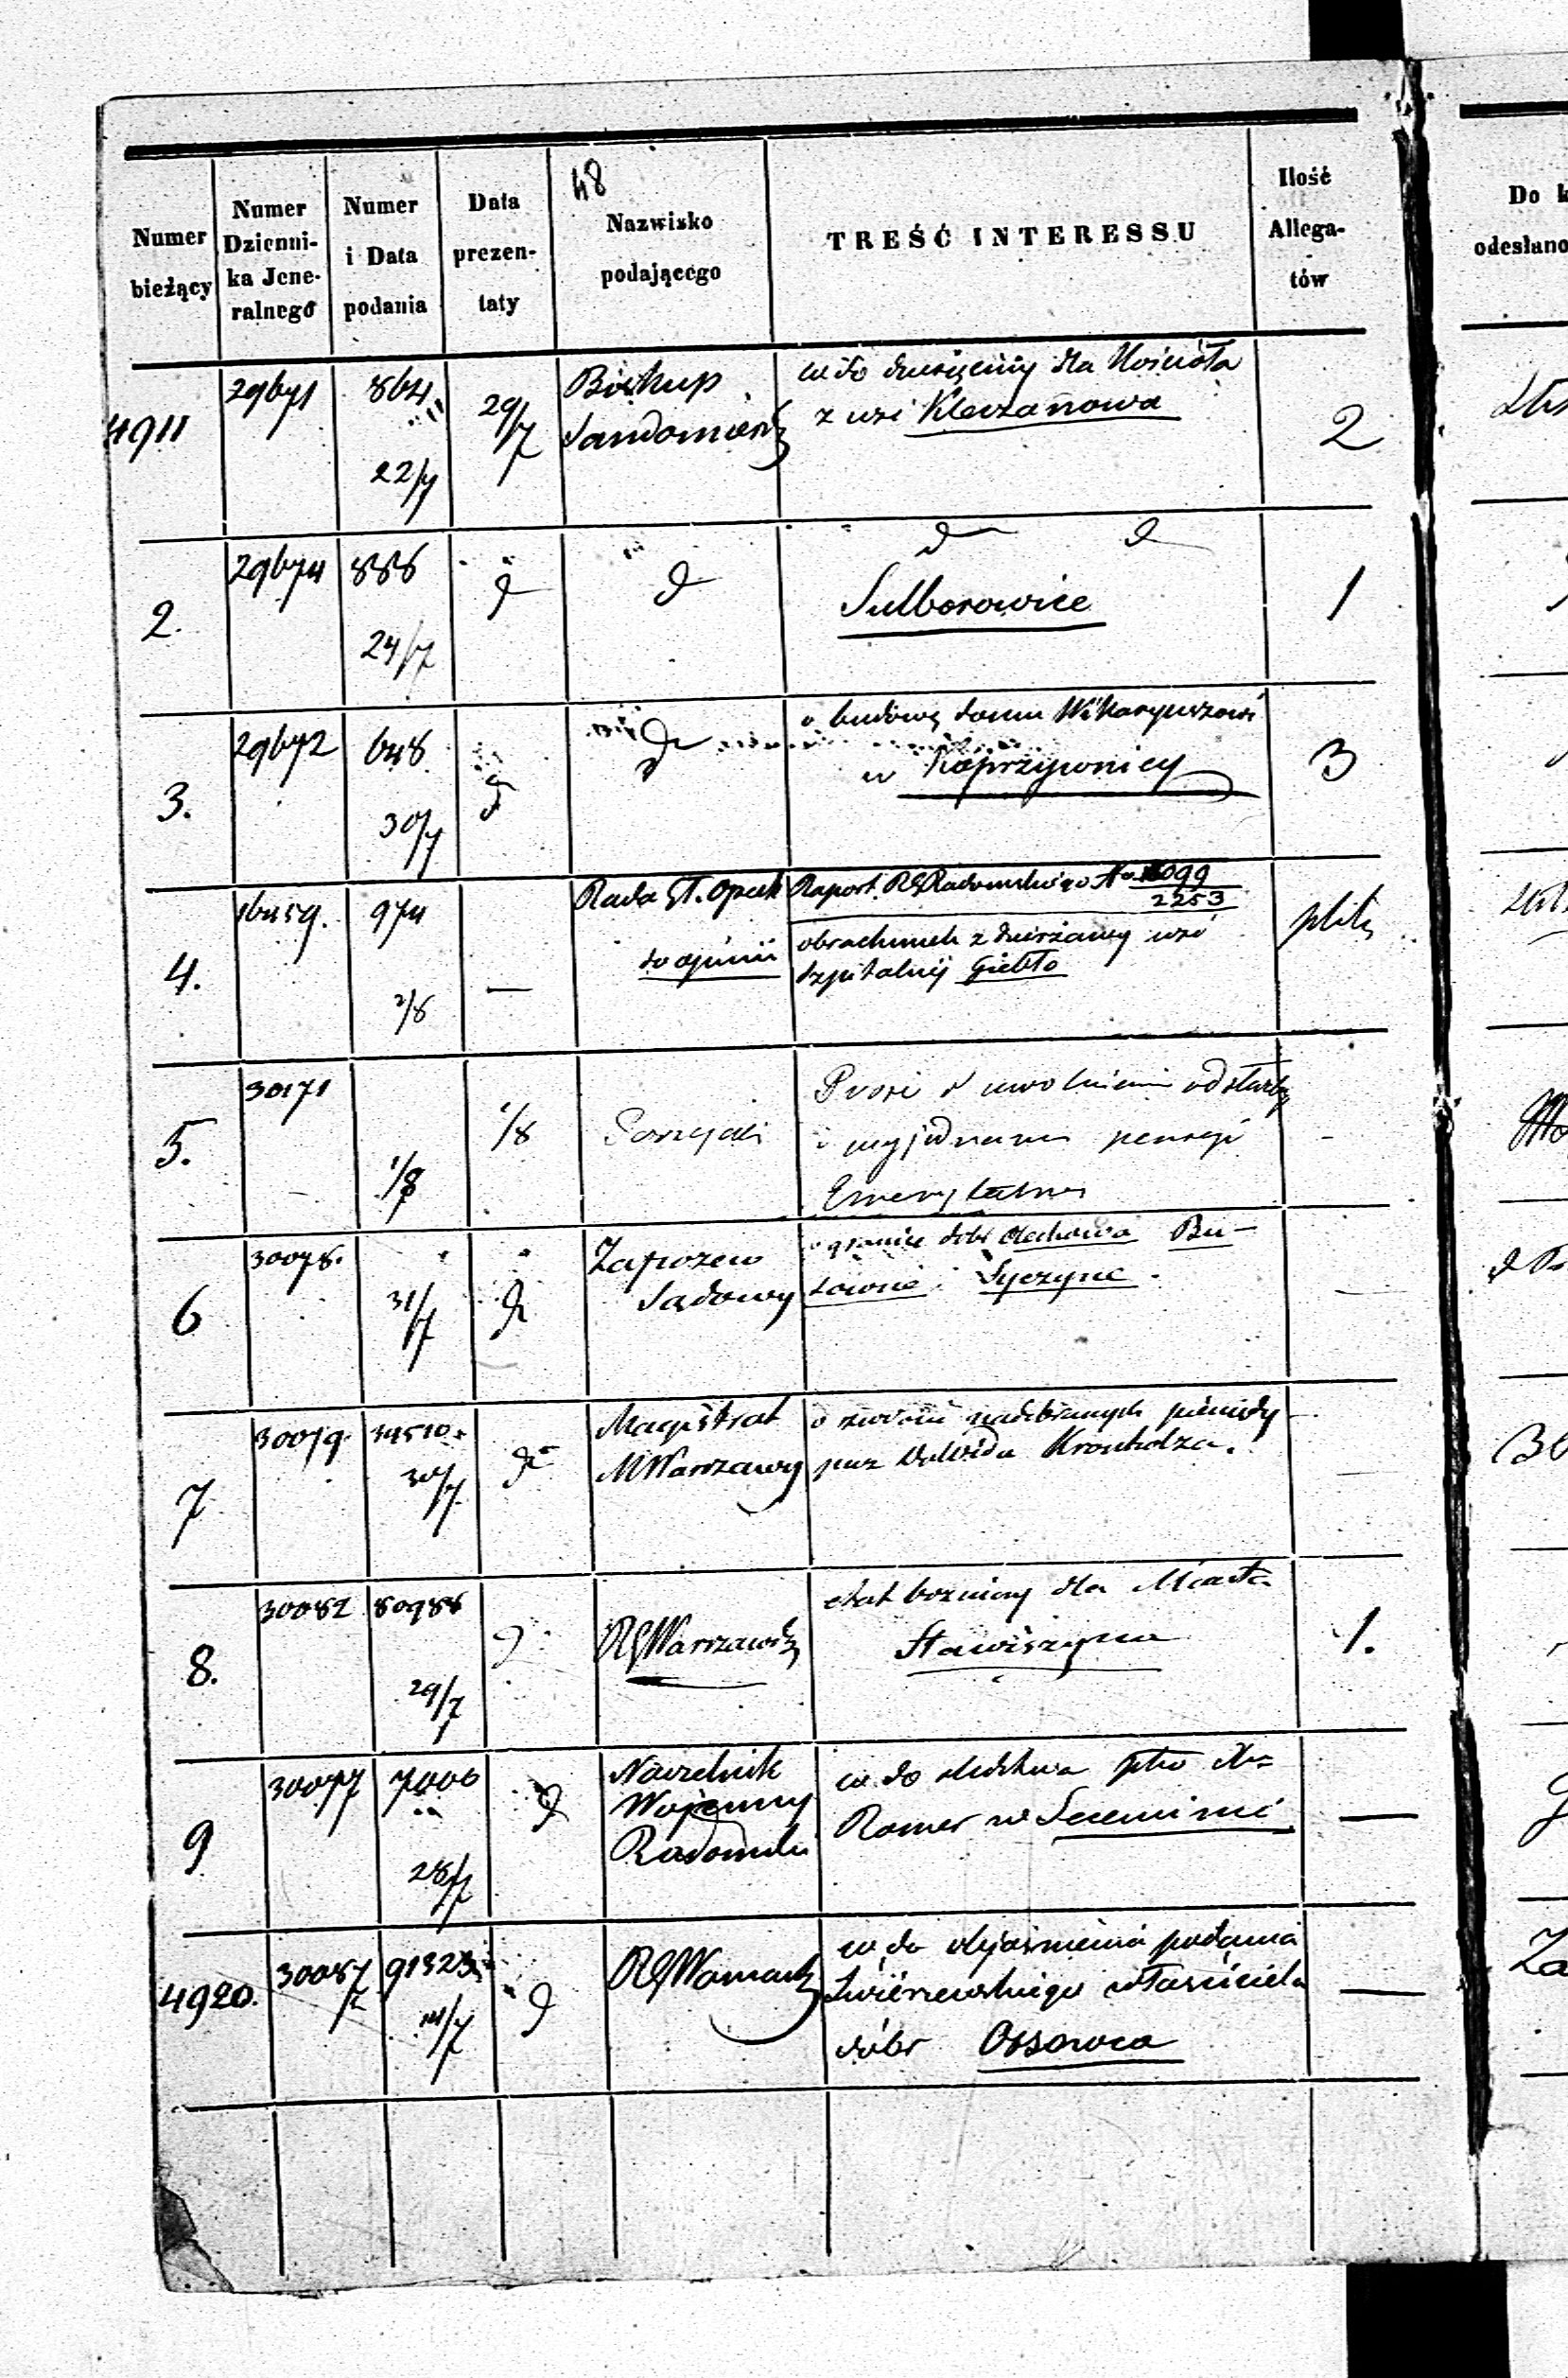 48
Numer bieżący
Numer Dzienni- ka Jene- ralnego
Numer i Data podania
Data prezen- taty
Nazwisko podającego
TREŚĆ INTERESSU
Ilość Allega- tów
Do k
odesłano
4911 29671 864 22/7 29/7
Biskup
Sandomiersk
co do dziesięciny dla Kościoła
z wsi Kleczanowa
2
2. 29674 886 24/7 d d d d
Sulborowice
1
3. 29672 648 30/7 d d
o budowę domu Wikaryuszowi
w Koprzywnicy
3
4. 16459. 974 2/8 —
Rada Gł. Opiek
do opinii
Raport RGRadomskiego No 099
2253
obrachunek z dzierżawy wsi
szpitalnij Giebło
plik
5. 30171 1/8 1/8
Prosi o uwolnienie od służby
i wyjednanie pensyi
Emerytalnej
-
6 30078. 31/7 d
Zapozew
Sądowy
o granice dóbr Olechowa Bu-
Syczyne.
7 30079. 34510. 30/7 d
Magistrat
MWarszawy
o zwrocie nadebranych pieniędzy
przez Dawida Kronholza.
8. 30082 80988 29/7 d
RGWarszawsk
etat bożniczy dla Miasta
Stawiszyna
1.
9 30077 7000 28/7 d
Naczelnik
Wojenny
Radomski
co do śledztwa
Romer w Seceminie
—
4920. 30087 91323 14/7 d
RGWarszawsk
co do objaśnienia podania
właściciela
dóbr Ossowca
—
Za